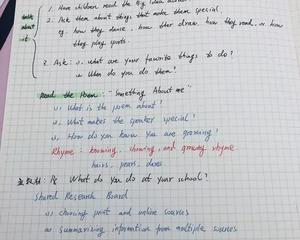 talk about it
1. Have children read the Big Idea
2. Ask them about things that make them special.
eg. how they dance, how they draw, how they read, or how they play sports.
3. Ask: (1) what are your favorite things to do?
(2) When do you do them?
Read the Poem: "Something About me"
(1) What is the poem about?
(2) What makes the speaker special?
(3) How do you know you are growing?
Rhyme: knowing, showing, and growing rhyme
hairs, pears, dares.
What do you do at your school?
Shared Research Board
(1) choosing print and online sources
(2) summarizing information from multiple sources